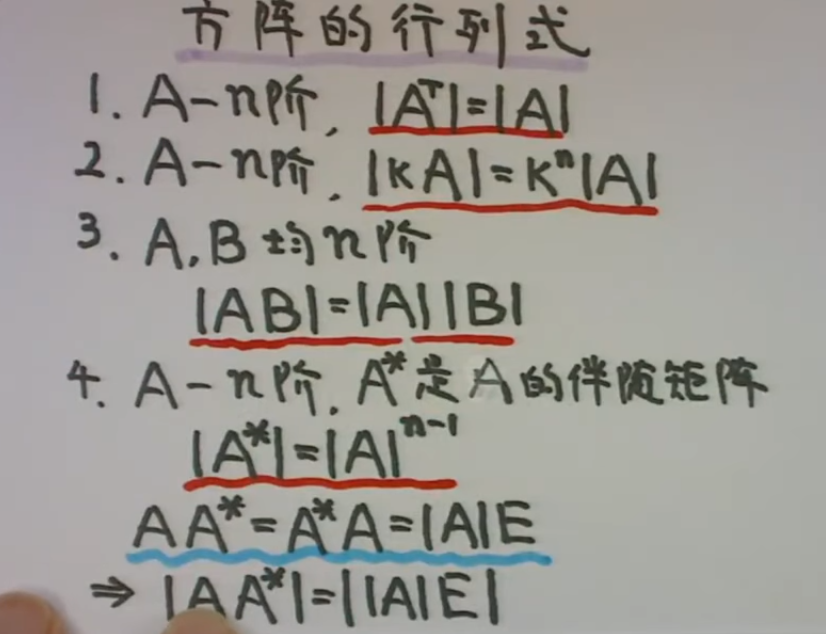 方阵的行列式
1. A-n阶, |Aᵀ|=|A|
2. A-n阶, |KA|=Kⁿ|A|
3. A,B均n阶
|AB|=|A||B|
4. A-n阶, A*是A的伴随矩阵
|A*|=|A|ⁿ⁻¹
AA*=A*A=|A|E
⇒ |AA*|=||A|E|